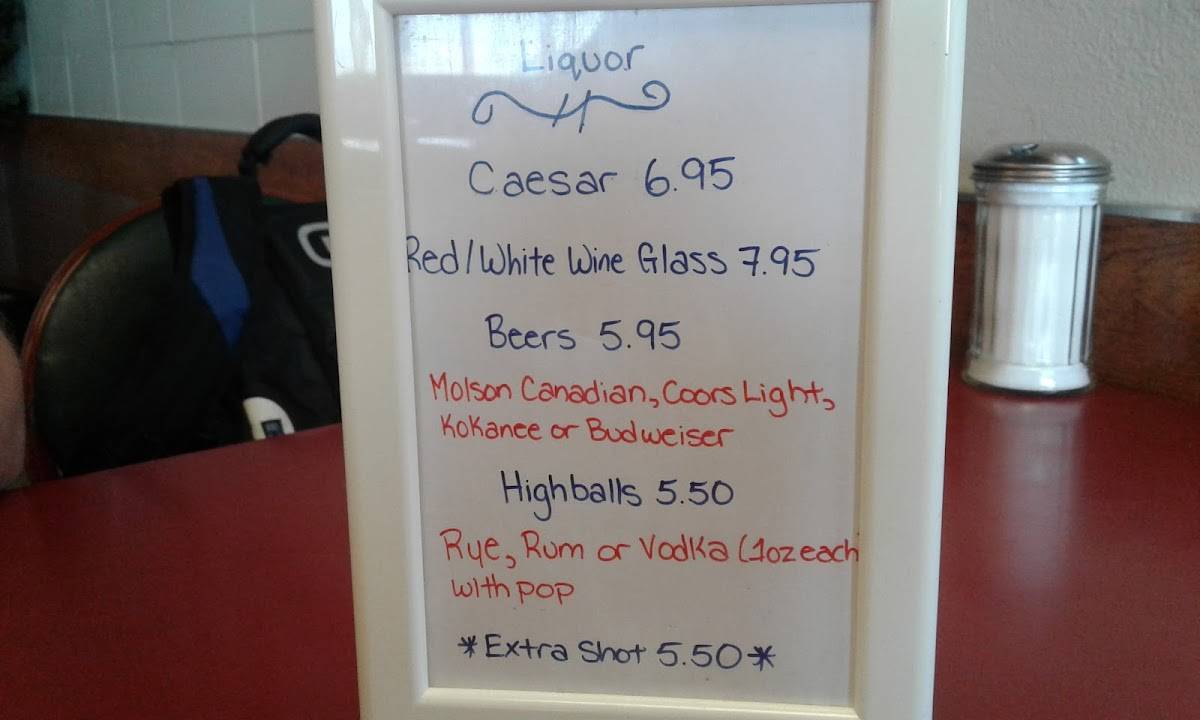 Liquor
Caesar 6.95
Red/White Wine Glass 7.95
Beers 5.95
Molson Canadian, Coors Light,
Kokanee or Budweiser
Highballs 5.50
Rye, Rum or Vodka (1oz each
with pop
*Extra Shot 5.50*